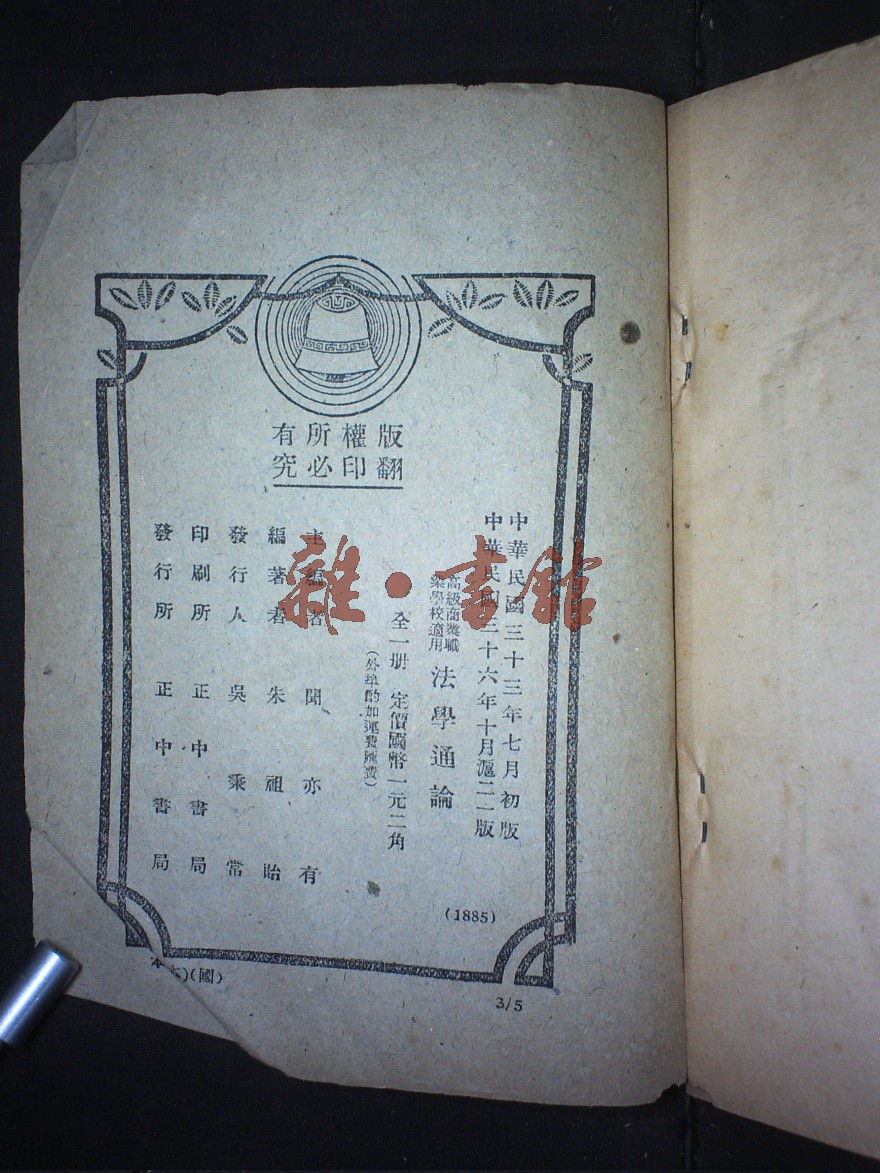 版權所有
翻印必究
中華民國三十三年七月初版
中華民國三十六年十月滬二一版
高級商業職
業學校適用
法學通論
全一册 定價國幣一元二角
(外埠酌加運費匯費)
主編者 聞亦有
編著者 朱祖貽
發行人 吳秉常
印刷所 正中書局
發行所 正中書局
(1885)
(國)
3/5
雜·書館